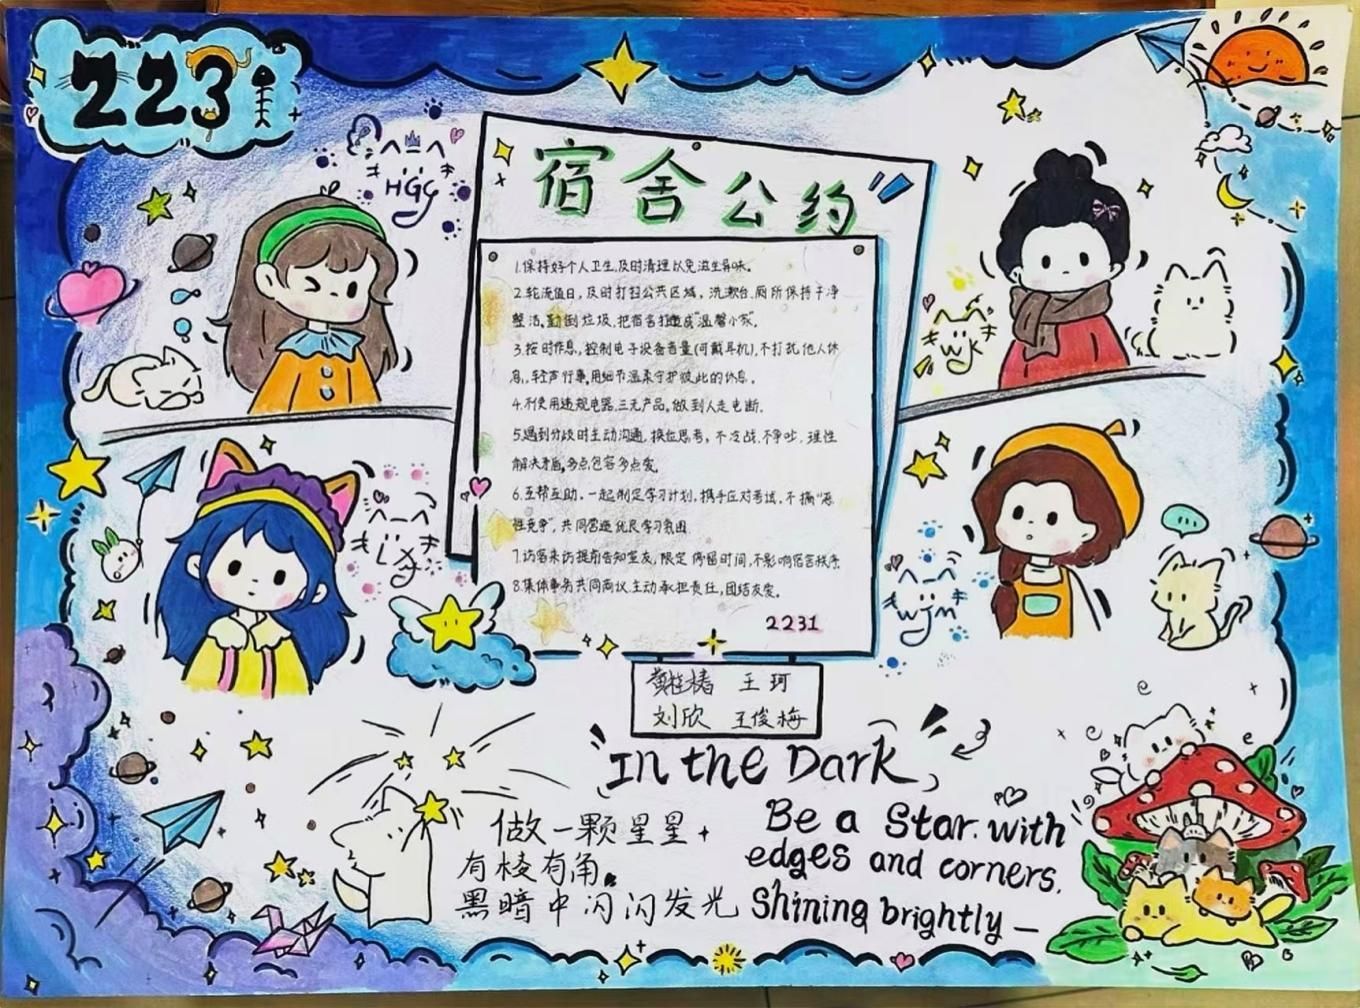 2231
HGG
宿舍公约
1.保持好个人卫生,及时清理以免滋生异味。
2.轮流值日,及时打扫公共区域,洗漱台.厕所保持干净
整洁,勤倒垃圾,把宿舍打造成"温馨小家"。
3.按时作息,控制电子设备音量(可戴耳机),不打扰他人休
息,轻声行事,用细节温柔守护彼此的休息。
4.不使用违规电器.三无产品,做到人走电断.
5.遇到分歧时主动沟通,换位思考,不冷战.不争吵.理性
解决矛盾,多点包容多点爱。
6.互帮互助,一起制定学习计划,携手应对考试,不搞"恶
性竞争",共同营造优良学习氛围.
7.访客来访提前告知室友,限定停留时间,不影响宿舍秩序
8.集体事务共同商议.主动承担责任,团结友爱.
2231
WK
LX
wjm
黄桂椿 王珂
刘欣 王俊梅
"In the Dark"
做一颗星星,
有棱有角。
黑暗中闪闪发光
Be a Star. with
edges and corners,
Shining brightly—